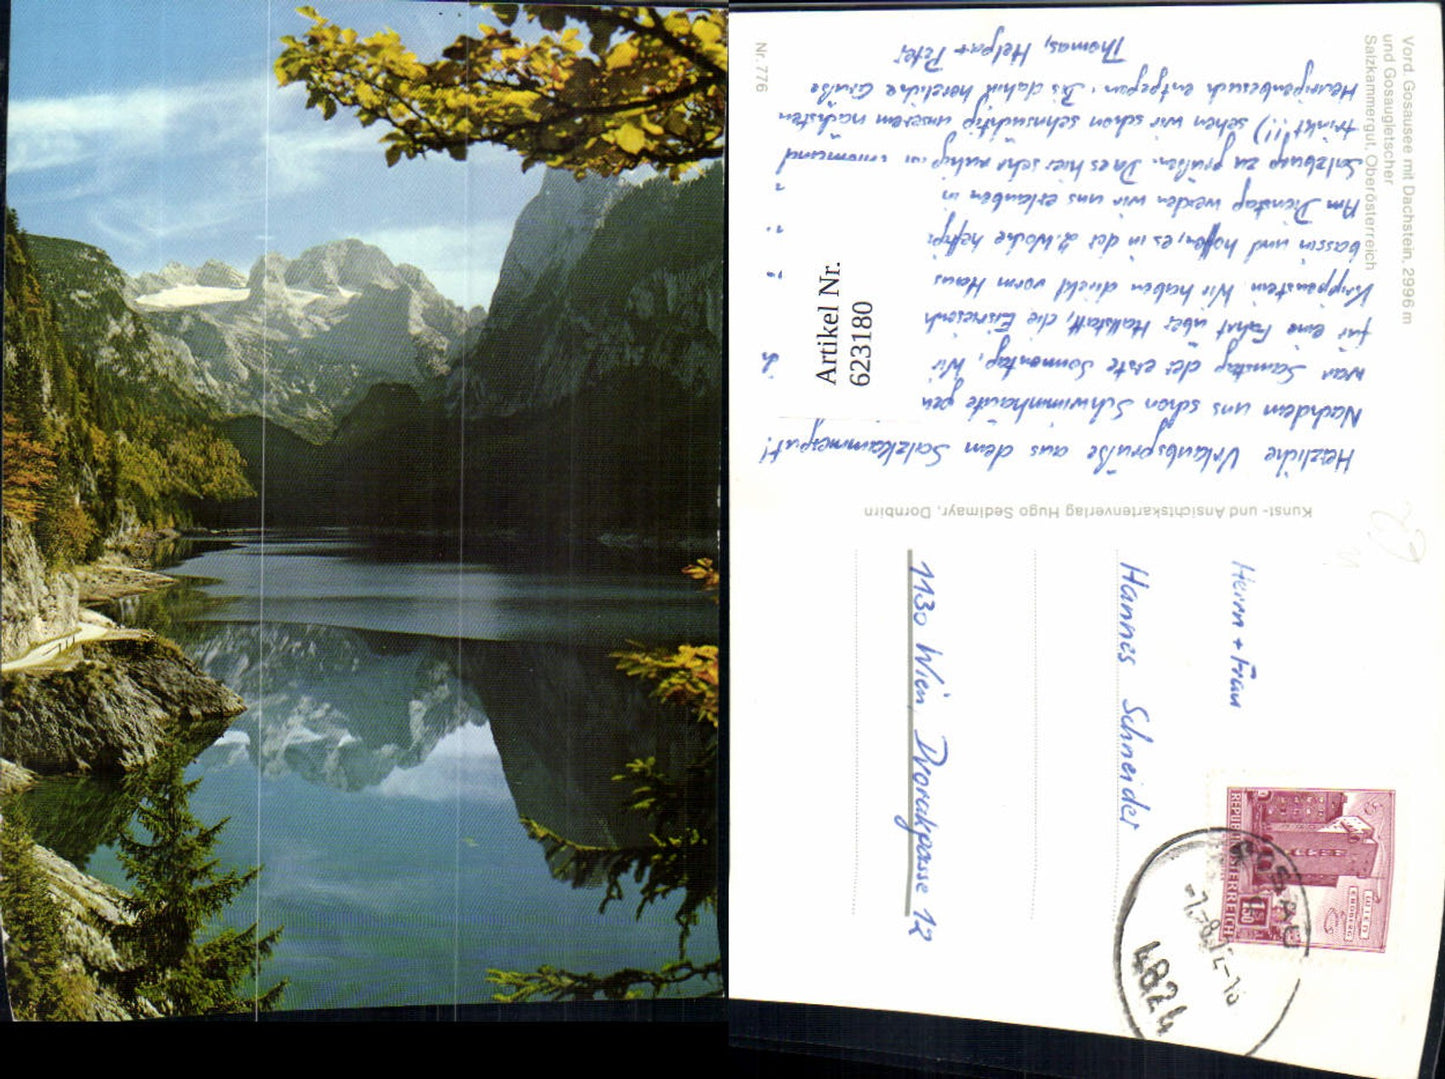 Vord. Gosausee mit Dachstein, 2996 m
und Gosaugletscher
Salzkammergut, Oberösterreich
Nr. 776
Herzliche Urlaubsgrüße aus dem Salzkammergut!
Nachdem uns schon Schwimmhäute
war Samstag der erste Sonnentag. Wir
für eine Fahrt über Hallstatt, die Eisriesen
Krippenstein. Wir haben direkt vorm Haus
bassin und hoffen, es in der 2. Woche
Am Dienstag werden wir uns erlauben in
Salzburg zu grüßen. Da es hier sehr ruhig ist
trinkt!!!) sehen wir schon sehnsüchtig unserem nächsten
Heurigenbesuch entgegen. Bis dahin herzliche Grüße
Thomas, Helga + Peter
Artikel Nr.
623180
Kunst- und Ansichtskartenverlag Hugo Sedlmayr, Dornbirn
Herrn + Frau
Hannes Schneider
1130 Wien, Dvorakgasse 12
REPUBLIK
ÖSTERREICH
1.50
GOSAU
4824